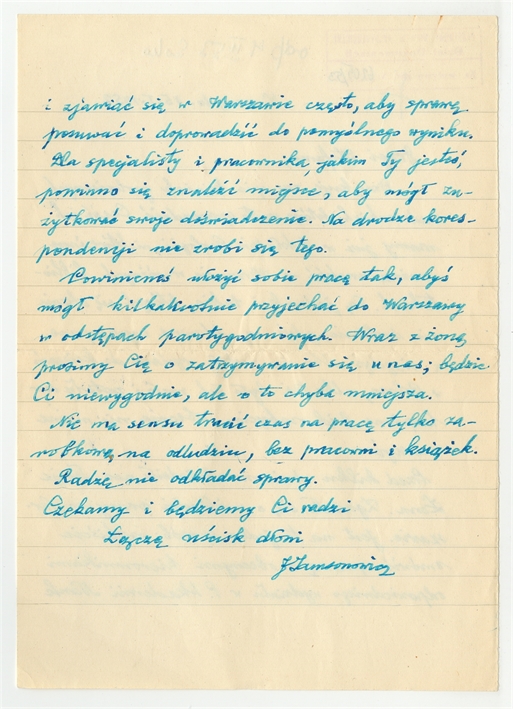 i zjawiać się w Warszawie często, aby sprawę
posuwać i doprowadzić do pomyślnego wyniku.
Dla specjalisty i pracownika, jakim Ty jesteś,
powinno się znaleźć miejsce, aby mógł zu-
żytkować swoje doświadczenie. Na drodze kores-
pondencji nie zrobi się tego.
Powinieneś ułożyć sobie pracę tak, abyś
mógł kilkakrotnie przyjechać do Warszawy
w odstępach parotygodniowych. Wraz z żoną
prosimy Cię o zatrzymywanie się u nas; będzie
Ci niewygodnie, ale o to chyba mniejsza.
Nie ma sensu tracić czas na pracę tylko za-
robkową, na odludziu, bez pracowni i książek.
Radzę nie odkładać sprawy.
Czekamy i będziemy Ci radzi
Łączę uścisk dłoni
JSamsonowicz